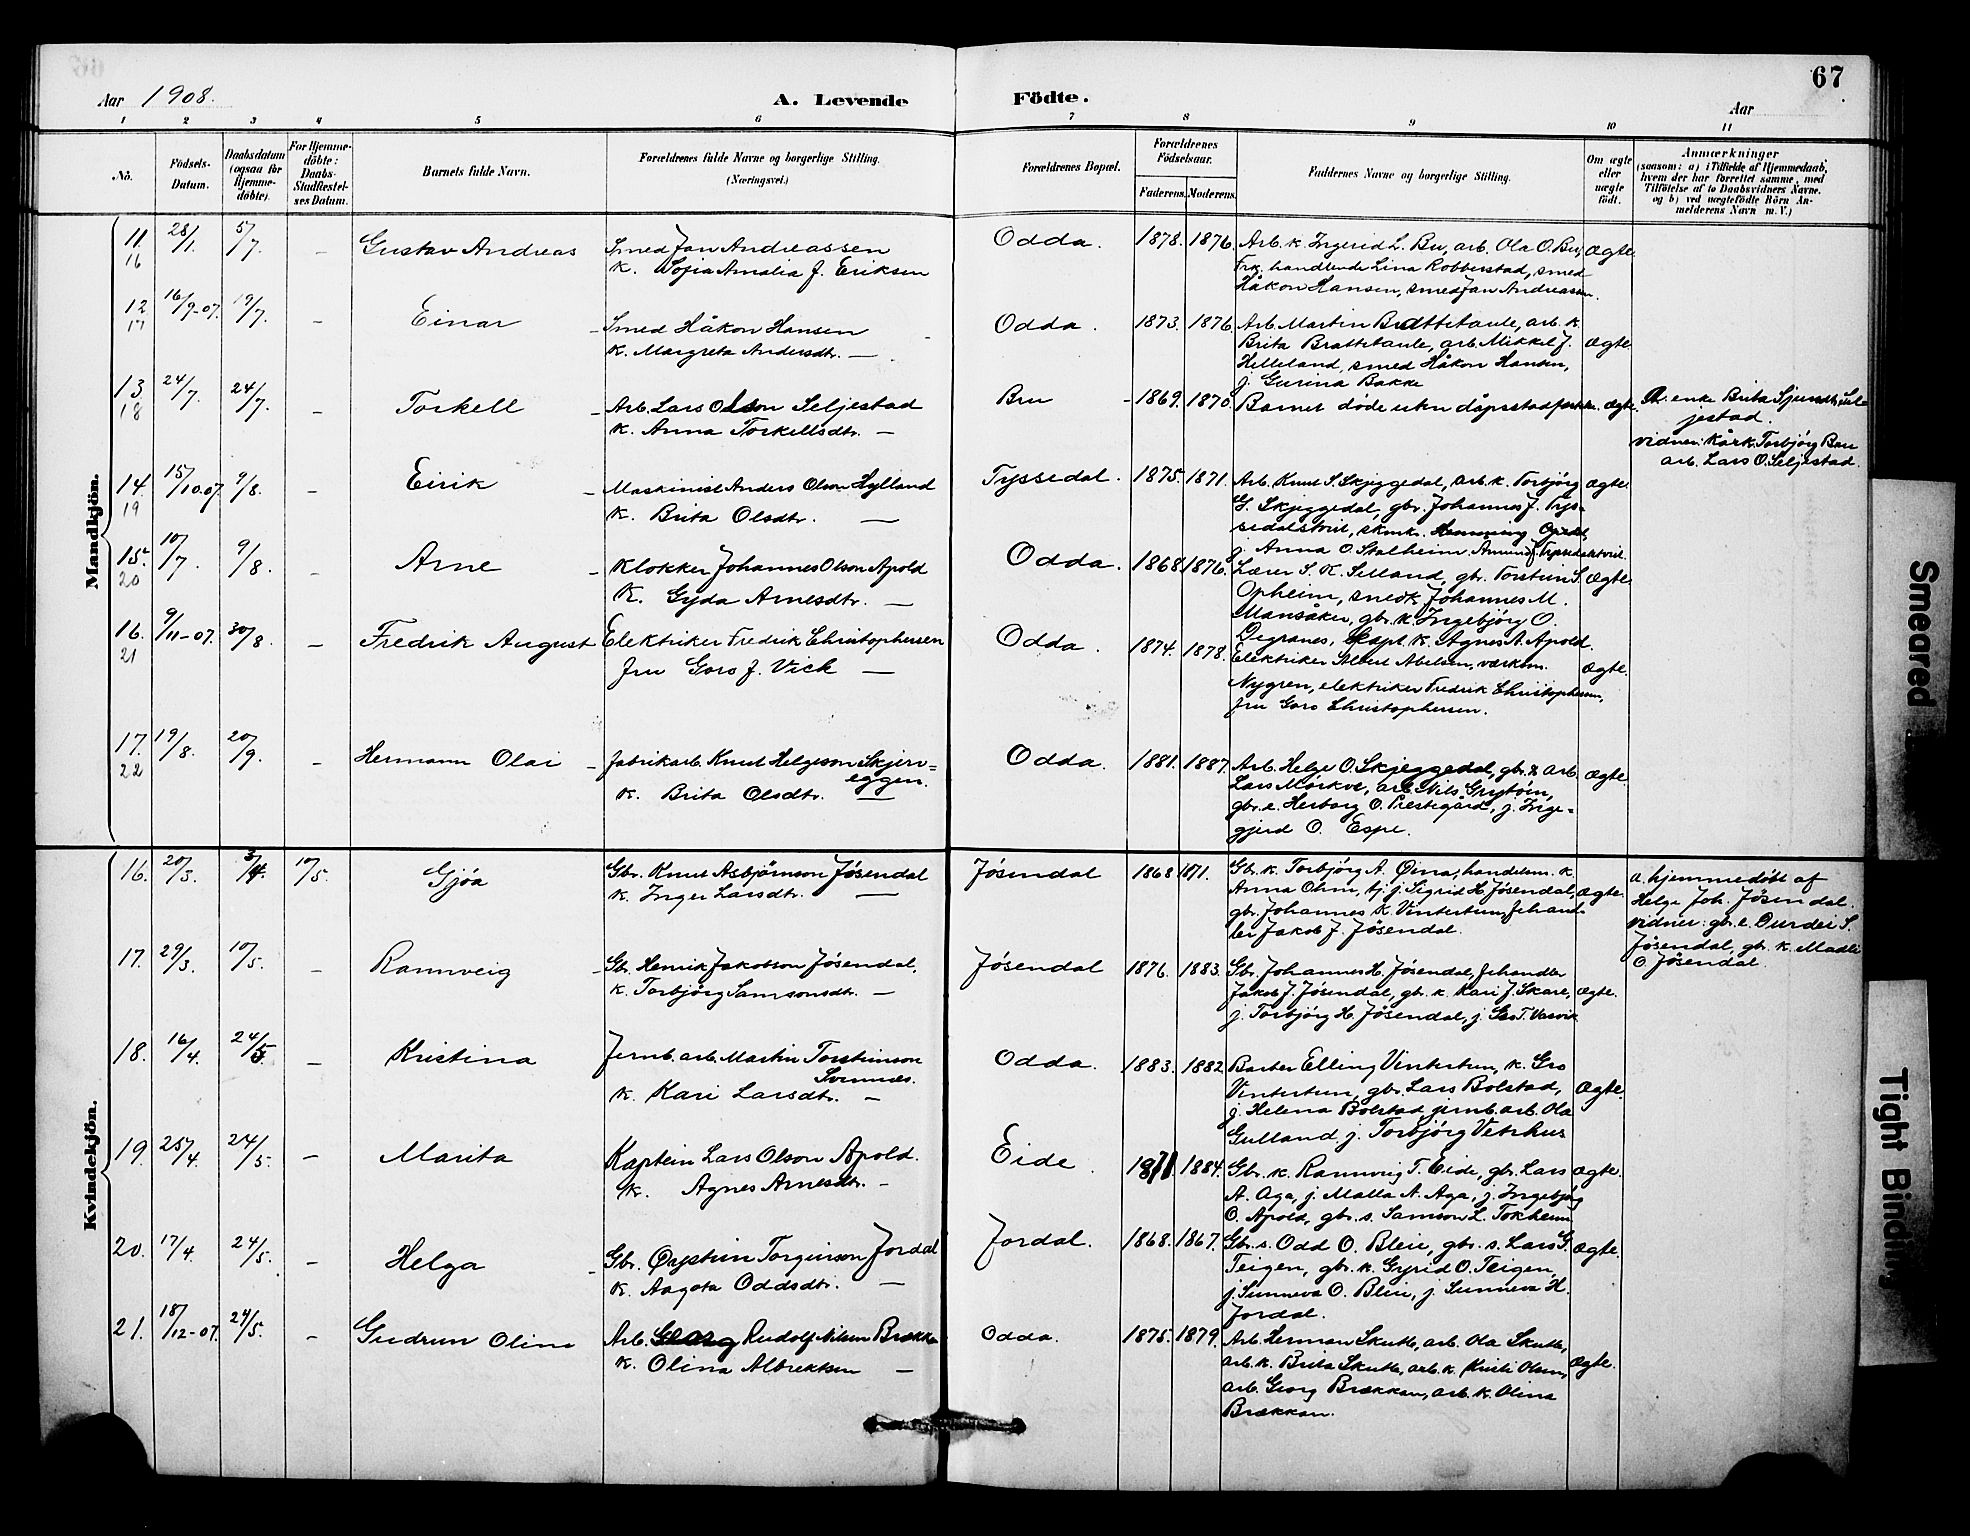 67
Aar 1908.
A. Levende Födte.
Aar
1 2 3 4 5 6 7 8 9 10 11
No.
Födsels-Datum.
Daabsdatum (ogsaa for Hjemme-döbte).
For Hjemme-döbte: Daabs-Stadfæstel-ses Datum.
Barnets fulde Navn.
Forældrenes fulde Navne og borgerlige Stilling. (Næringsvei.)
Forældrenes Bopæl.
Forældrenes Födselsaar.
Faderens. Moderens.
Faddernes Navne og borgerlige Stilling.
Om ægte eller uægte født.
Anmærkninger
(saasom: a) i Tilfælde af Hjemmedaab, hvem der har forrettet samme, med Tilföielse af to Daabsvidners Navne. og b) ved uægtefödte Börn An-melderens Navn m. V.)
Mandkjön.
11. 16 28/1. 5/7. – Gustav Andreas
Smed Jan Andreassen
k. Sofia Amalia f. Eriksen
Odda. 1878. 1876.
Arb. k. Ingerid L. Bu, arb. Ola O. Bu,
Frk. handlende Lina Robberstad, smed
Håkon Hansen, smed Jan Andreassen.
ægte.
12 17 16/9-07. 19/7. – Einar
Smed Håkon Hansen
k. Margreta Andersdtr. —
Odda. 1873. 1876.
Arb. Martin Brattetaule, arb. k.
Brita Brattetaule, arb. Mikkel J.
Helleland, smed Håkon Hansen,
j. Gurina Bakke
ægte.
13 18 24/7. 24/7. – Torkell
Arb. Lars Olson Seljestad
k. Anna Torkellsdtr. —
Bru 1869. 1870.
Barnet døde utn dåpsstadfæstelse. ægte.
a. enke Brita Sjursdtr. Sel-
jestad.
vidner: Kårk. Torbjörg Bru
arb. Lars O. Seljestad.
14. 19 15/10.07. 9/8. – Eirik
Maskinist Anders Olson Hylland
k. Brita Olsdtr. —
Tyssedal. 1875. 1871.
Arb. Knut S. Skjeggedal, arb. k. Torbjörg
G. Skjeggedal, gbr. Johannes J. Tys-
sedalstveit, Henning
j. Anna O. Stalheim. Amund J. Tyssedalstveit.
ægte.
15. 20 10/7. 9/8. – Arne
Klokker Johannes Olson Apold
K. Gyda Arnesdtr. —
Odda. 1868. 1876.
Lærer S. K. Selland, gbr. Torstein S.
Opheim, smedk Johannes M.
Mansåker, gbr. k. Ingebjörg O.
Degranes, kapt. k. Agnes A. Apold.
ægte.
16. 21 9/11-07. 30/8. – Fredrik August
Elektriker Fredrik Christophersen
fru Goro f. Vick —
Odda. 1874. 1878.
Elektriker Albert Abelsen, værkm.
Nygren, elektriker Fredrik Christophersen,
fru Goro Christophersen.
ægte.
17. 22 19/8. 20/9. – Hermann Olai
Fabrikarb. Knut Helgeson Skjerv-
eggen.
k. Brita Olsdtr. —
Odda. 1881. 1887.
Arb. Helge O. Skjeggedal, gbr. & arb
Lars Mörkve, arb. Nils Grytöin,
gbr. e. Herborg O. Prestegård, j. Inge-
gjerd O. Espe.
ægte.
Kvindekjön.
16. 20/3. 3/4. 10/5. Gjöa
Gbr. Knut Asbjörnson Jösendal
k. Inger Larsdtr. —
Jösendal 1868 1871.
Gbr. k. Torbjörg A. Öina, handelsm. k.
Anna Ohm, tj. j. Sigrid H. Jösendal,
gbr. Johannes K. Vintertun, fehand-
ler Jakob J. Jösendal.
ægte.
a. hjemmedöbt af
Helge Joh. Jösendal.
vidner: gbr. e. Durdei S.
Jösendal, gbr. k. Madli
O. Jösendal.
17. 29/3. 10/5. – Rannveig
Gbr. Henrik Jakobson Jösendal.
k. Torbjörg Samsonsdtr. —
Jösendal 1876. 1883.
Gbr. Johannes H. Jösendal, fehandler
Jakob J. Jösendal, gbr. k. Kari J. Skare,
j. Torbjörg H. Jösendal, j. Gro T. Vasvik
ægte.
18. 16/4. 24/5. – Kristina
Jernb. arb. Martin Torsteinson
Svennes.
k. Kari Larsdtr. —
Odda. 1883. 1882
Barber Elling Vintertun, k. Gro
Vintertun, gbr. Lars Bolstad,
j. Helena Bolstad, jernb. arb. Ola
Gulland, j. Torbjörg Vetrhus
ægte.
19. 25/4. 24/5. – Marita
Kaptein Lars Olson Apold.
k. Agnes Arnesdtr. —
Eide. 1871 1884.
Gbr. k. Rannveig T. Eide, gbr. Lars
A. Aga, j. Malla A. Aga, j. Ingebjörg
O. Apold, gbr. s. Samson L. Tokheim
ægte.
20. 17/4. 24/5. – Helga
Gbr. Öystein Torgeirson Jordal
k. Aagota Oddsdtr. —
Jordal. 1868. 1867.
Gbr. s. Odd O. Bleie, gbr. s. Lars G.
Teigen, gbr. k. Gyrid O. Teigen,
j. Sunneva O. Bleie, j. Sunneva H.
Jordal.
ægte.
21. 18/12-07. 24/5. – Gudrun Oline
Arb. Georg Rudolf Nilsen Brækkan
k. Olina Albrektsen —
Odda. 1875. 1879.
Arb. Herman Skutle, arb. Ola Skutle,
arb. k. Brita Skutle, arb. k. Kristi Olsen,
arb. Georg Brækkan, arb. k. Olina
Brækkan.
ægte.
Smeared
Tight Binding